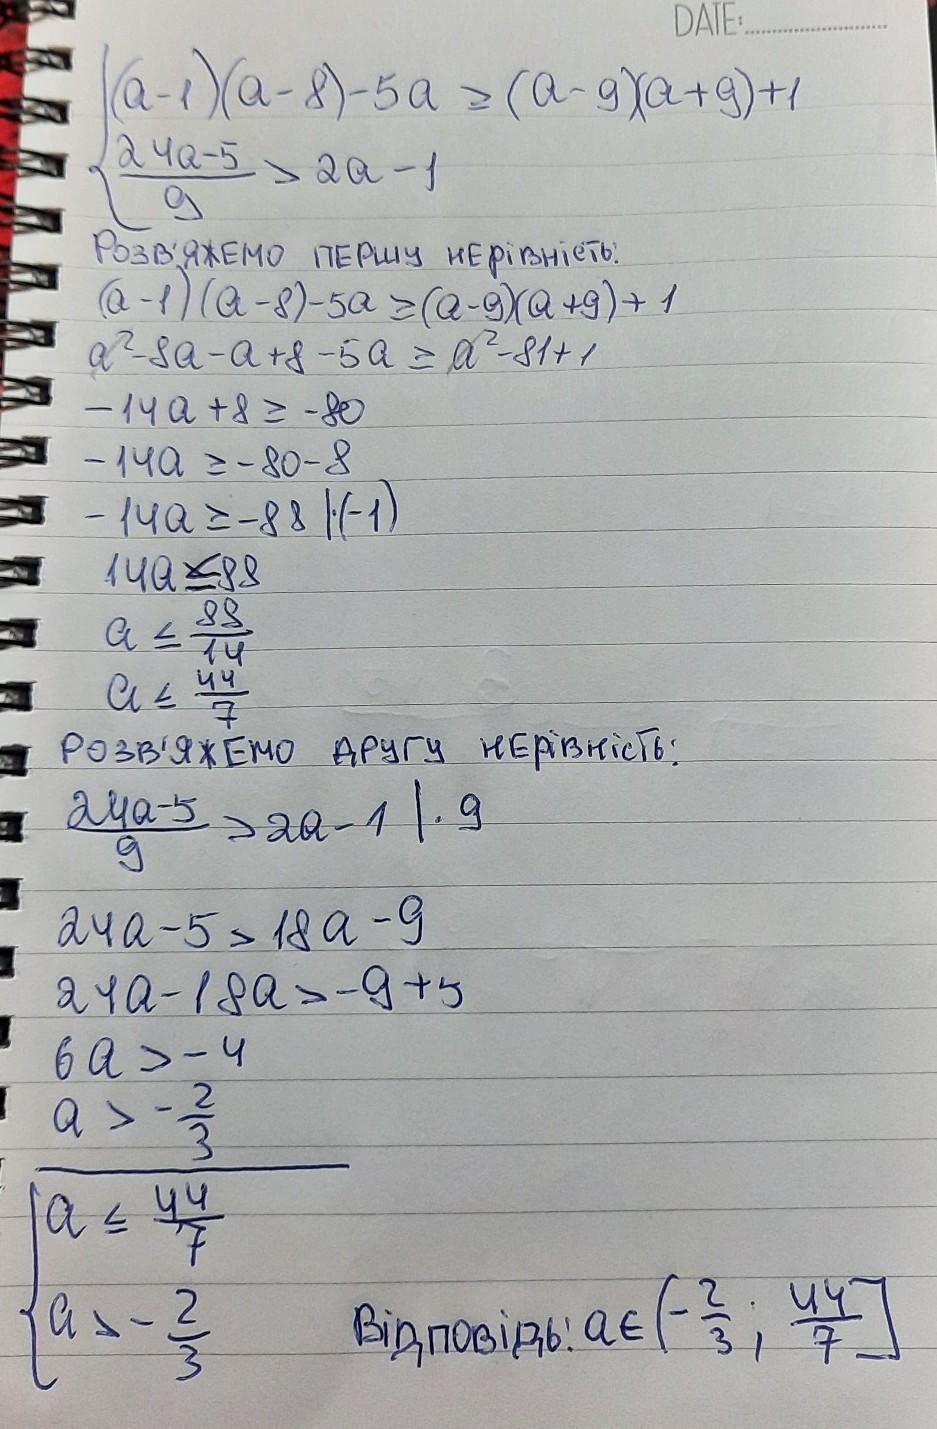 DATE:
(a-1)(a-8)-5a ≥ (a-9)(a+9)+1
24a-5/9 > 2a-1
Розв'яжемо першу нерівність:
(a-1)(a-8)-5a ≥ (a-9)(a+9)+1
a²-8a-a+8-5a ≥ a²-81+1
-14a+8 ≥ -80
-14a ≥ -80-8
-14a ≥ -88 |·(-1)
14a ≤ 88
a ≤ 88/14
a ≤ 44/7
Розв'яжемо другу нерівність:
24a-5/9 > 2a-1 |·9
24a-5 > 18a-9
24a-18a > -9+5
6a > -4
a > -2/3
a ≤ 44/7
a > -2/3 Відповідь: a ∈ (-2/3; 44/7]